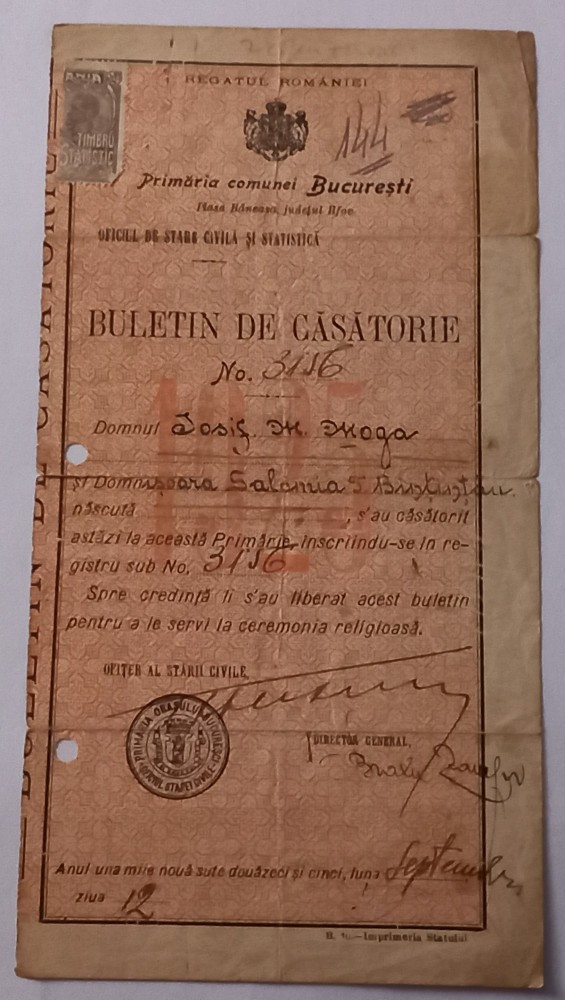 TIMBRU
STATISTIC
REGATUL ROMÂNIEI
144
Primăria comunei București
Plasa Băneasa, județul Ilfov
OFICIUL DE STARE CIVILĂ ȘI STATISTICĂ
BULETIN DE CĂSĂTORIE
BULETIN DE CĂSĂTORIE
No. 3156
1925
Domnul Iosif M. Moga
și Domnișoara Salomia T.
născută , s'au căsătorit
astăzi la această Primărie, inscriindu-se în re-
gistru sub No. 3156
Spre credință li s'au liberat acest buletin
pentru a le servi la ceremonia religioasă.
OFIȚER AL STĂRII CIVILE,
PRIMĂRIA ORAȘULUI BUCUREȘTI
OFICIUL STĂREI CIVILE
DIRECTOR GENERAL,
Anul una mie nouă sute douăzeci și cinci, luna Septembrie
ziua 12
—Imprimeria Statului